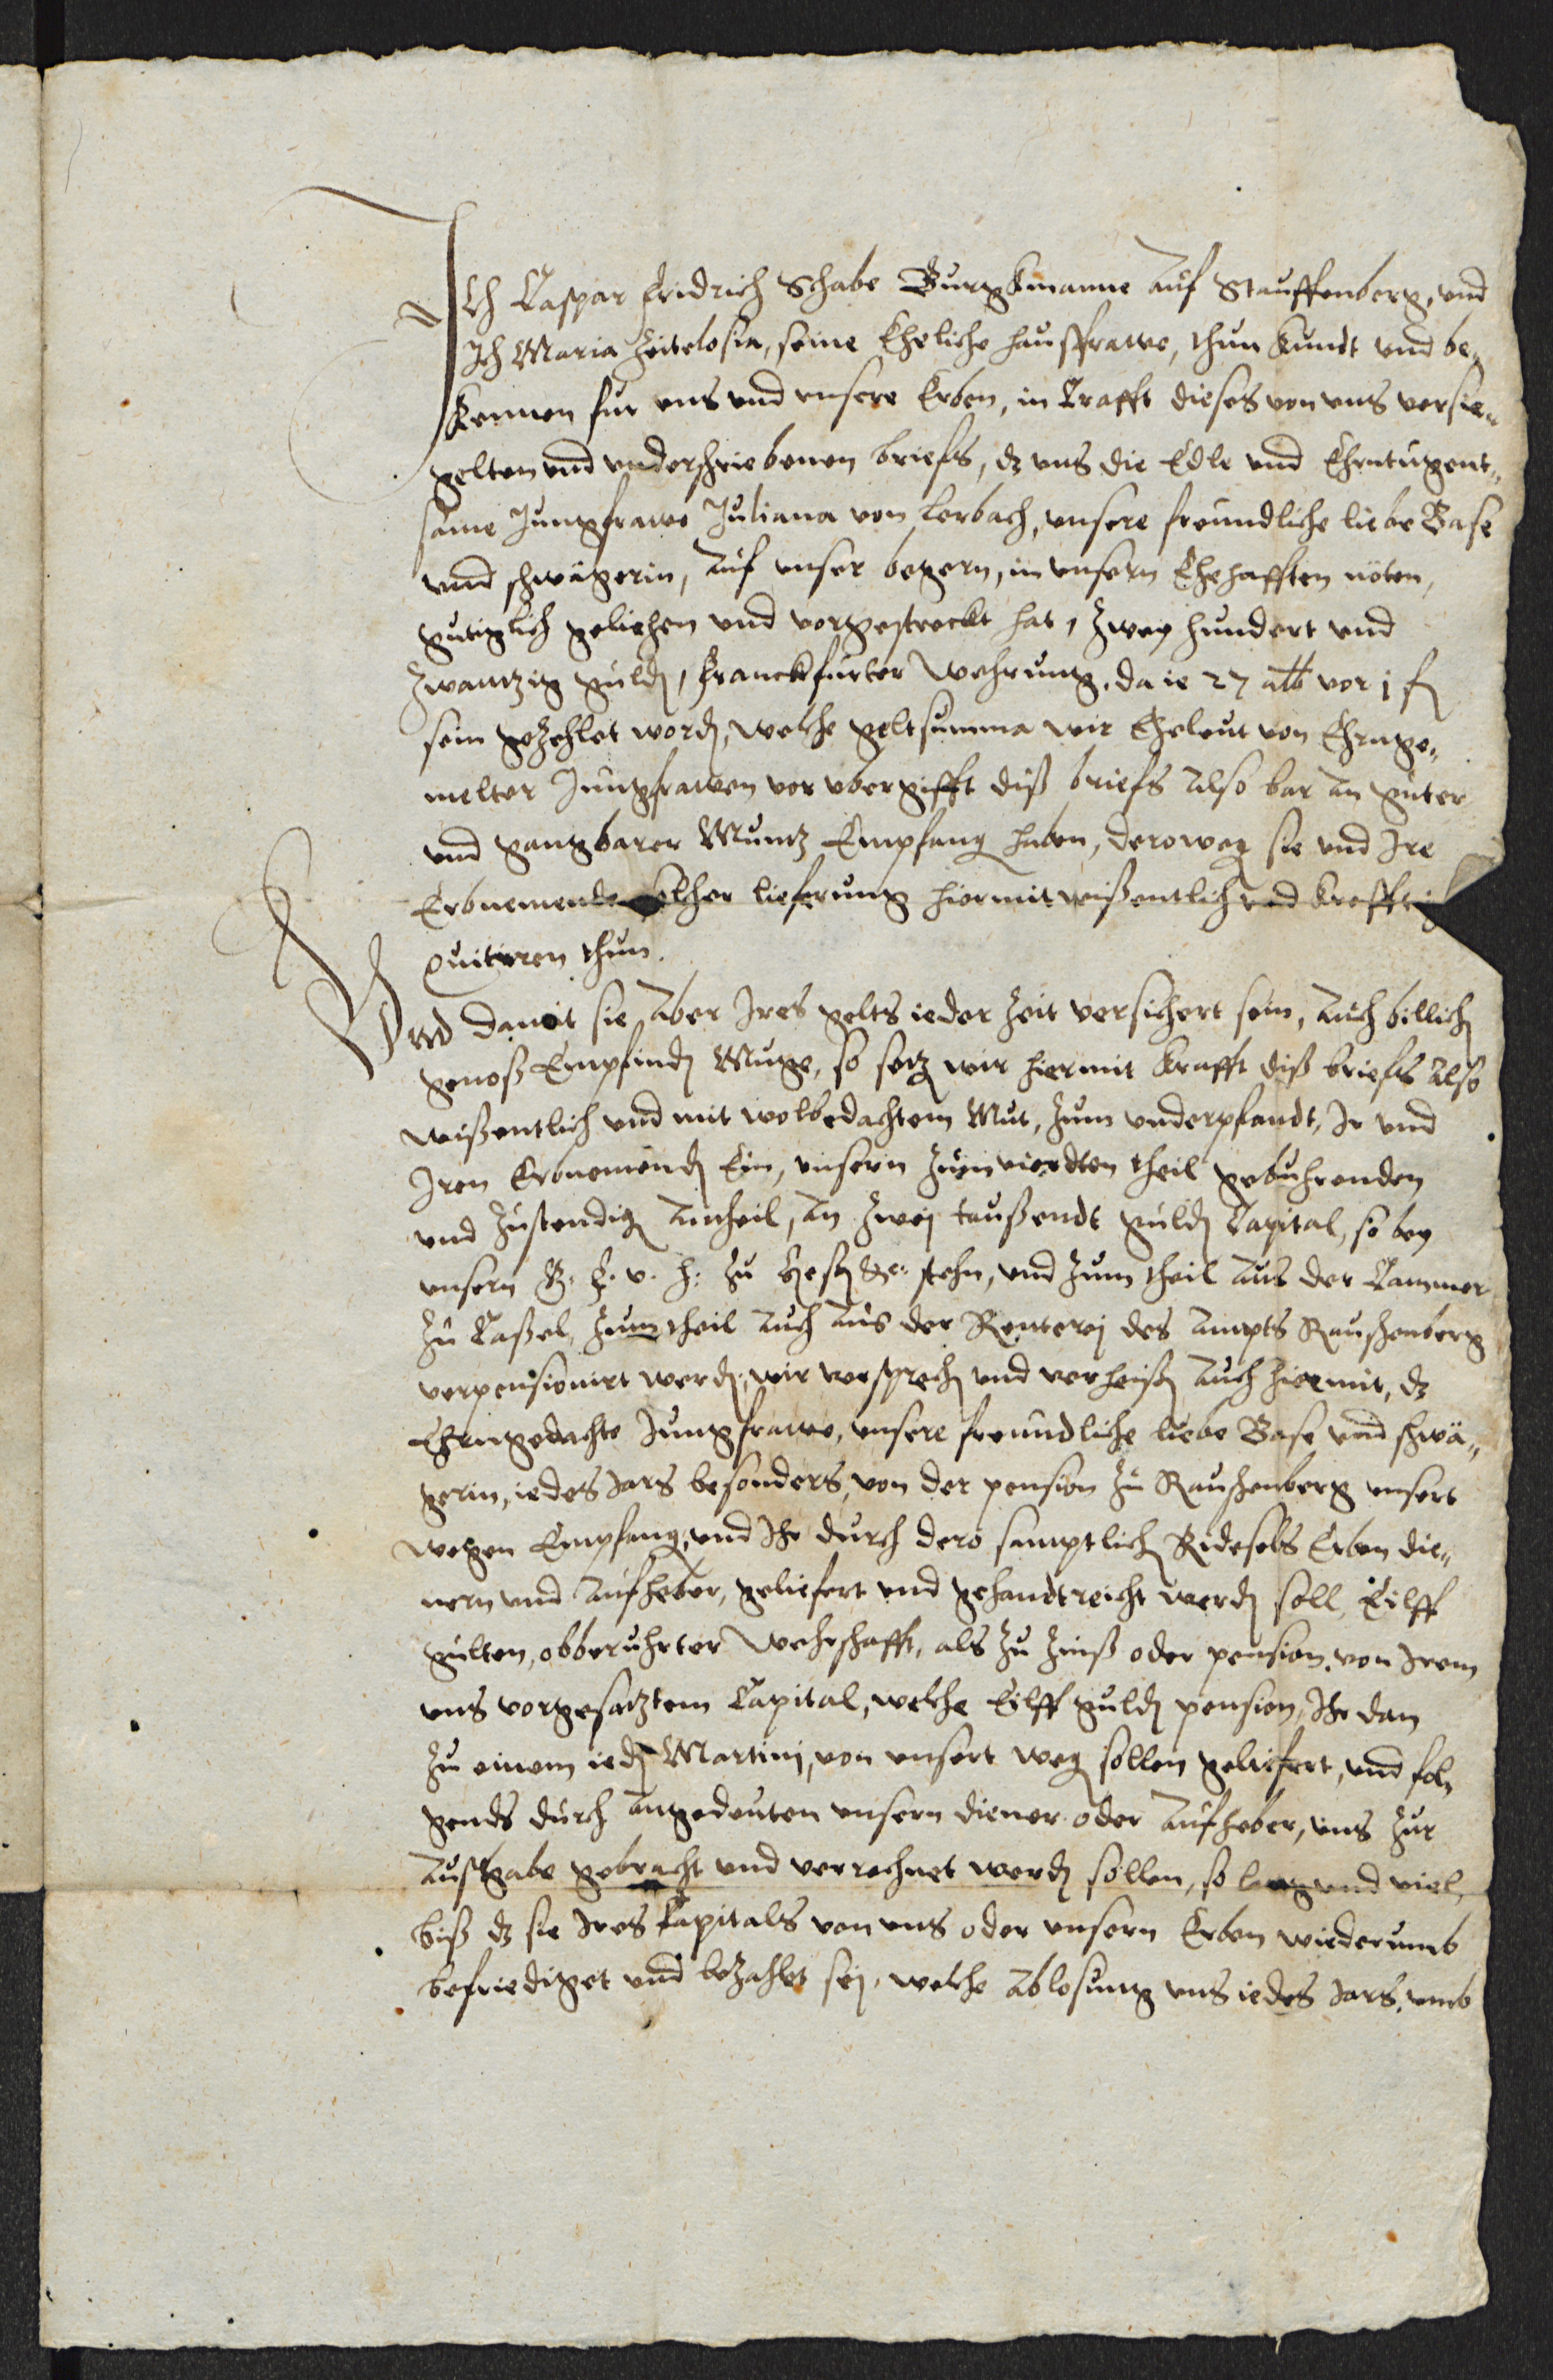 Ich Caspar Fridrich Schabe Burgkmanne auf Stauffenberg, und
Ich Maria Zeitelosia, seine Eheliche haussfrawe, thun kundt und be„
kennen fur uns und unsere Erben, in Crafft dieses von uns versie„
gelten und underschriebenen briefs, dz uns die Edle und Ehrntugent„
same Jungfrawe Juliana von Lerbach, unsere freundliche liebe Base
und schwägerin, auf unser begern, in unsern Ehehafften nöten,
gutiglich geliehen und vorgestreckt hat, Zwey hundert und
Zwantzig guld, Franckfurter Wehrung, da ie 27 alb vor 1 f
sein gezehlet word, welche geltsumma wir Eheleut von Ehrnge„
melter Jungfrawen vor ubergifft diss briefs also bar an guter
und gangbarer Muntz Empfang haben, deroweg sie und Ire
Erbnemende solcher lieferung hiermit wissentlich und krefftig
quitiren thun.
Und damit sie aber Ires gelts ieder Zeit versichert sein, auch billich
genoss Empfind Muge, so setz wir hiermit krafft diss briefs also
wissentlich und mit wolbedachtem Mut, zum underpfandt, Ir und
Iren Erbnemend Ein, unsern zum vierdten theil gebuhrenden
und zustendig antheil, an Zwej taussendt guld Capital, so bey
unsern G. F. v. H. zu Hess &c. stehn, und zum theil aus der Cammer
zu Cassel, zum theil auch aus der Renterej des Ampts Rauschenberg
verpensionirt werd, wir versprech und verheiss auch hiermit, dz
Ehrngedachte Jungfrawe, unsere freundliche liebe Base und schwä„
gerin, iedes Jars besonders, von der pension zu Rauschenberg unsert
wegen Empfang, und Ihr durch dero samptlich Ridesels Erben die„
nern und aufheber, geliefert und gehandtreicht werd soll, Eilff
gulten, obberuhrter Wehrschafft, als zu Zinss oder pension, von Irem
uns vorgesatztem Capital, welche Eilff guld pension, Ihr dan
zu einem ied Martinj, von unsert weg sollen geliefert, und fol„
gends durch angedeuten unsern diener oder aufheber, uns zur
Aussgabe gebracht und verrechnet werd sollen, so lang und viel,
biss dz sie Ires Capitals von uns oder unsern Erben wiederumb
befriediget und bezahlet sej, welche ablosung uns iedes Jars, umb